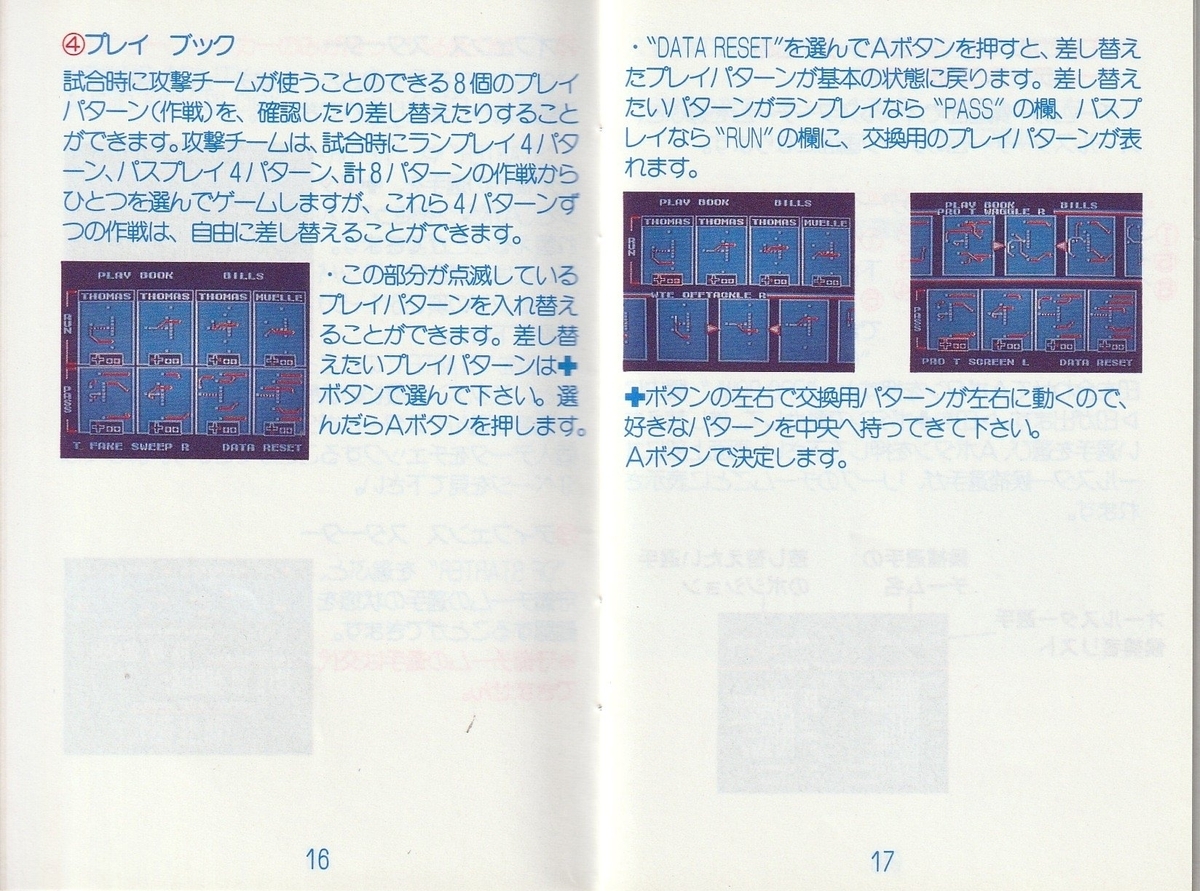 ④プレイ ブック
試合時に攻撃チームが使うことのできる8個のプレイ
パターン(作戦)を、確認したり差し替えたりすること
ができます。攻撃チームは、試合時にランプレイ4パタ
ーン、パスプレイ4パターン、計8パターンの作戦から
ひとつを選んでゲームしますが、これら4パターンず
つの作戦は、自由に差し替えることができます。
PLAY BOOK BILLS
THOMAS THOMAS THOMAS MUELLE
RUN
PASS
T FAKE SWEEP R DATA RESET
・この部分が点滅している
プレイパターンを入れ替え
ることができます。差し替
えたいプレイパターンは✚
ボタンで選んで下さい。選
んだらAボタンを押します。
16
・“DATA RESET”を選んでAボタンを押すと、差し替え
たプレイパターンが基本の状態に戻ります。差し替え
たいパターンがランプレイなら“PASS”の欄、パスプ
レイなら“RUN”の欄に、交換用のプレイパターンが表
れます。
PLAY BOOK BILLS
THOMAS THOMAS THOMAS MUELLE
RUN
WTF OFFTACKLE R
PLAY BOOK BILLS
PRO T WAGGLE R
PASS
PRO T SCREEN L DATA RESET
✚ボタンの左右で交換用パターンが左右に動くので、
好きなパターンを中央へ持ってきて下さい。
Aボタンで決定します。
17